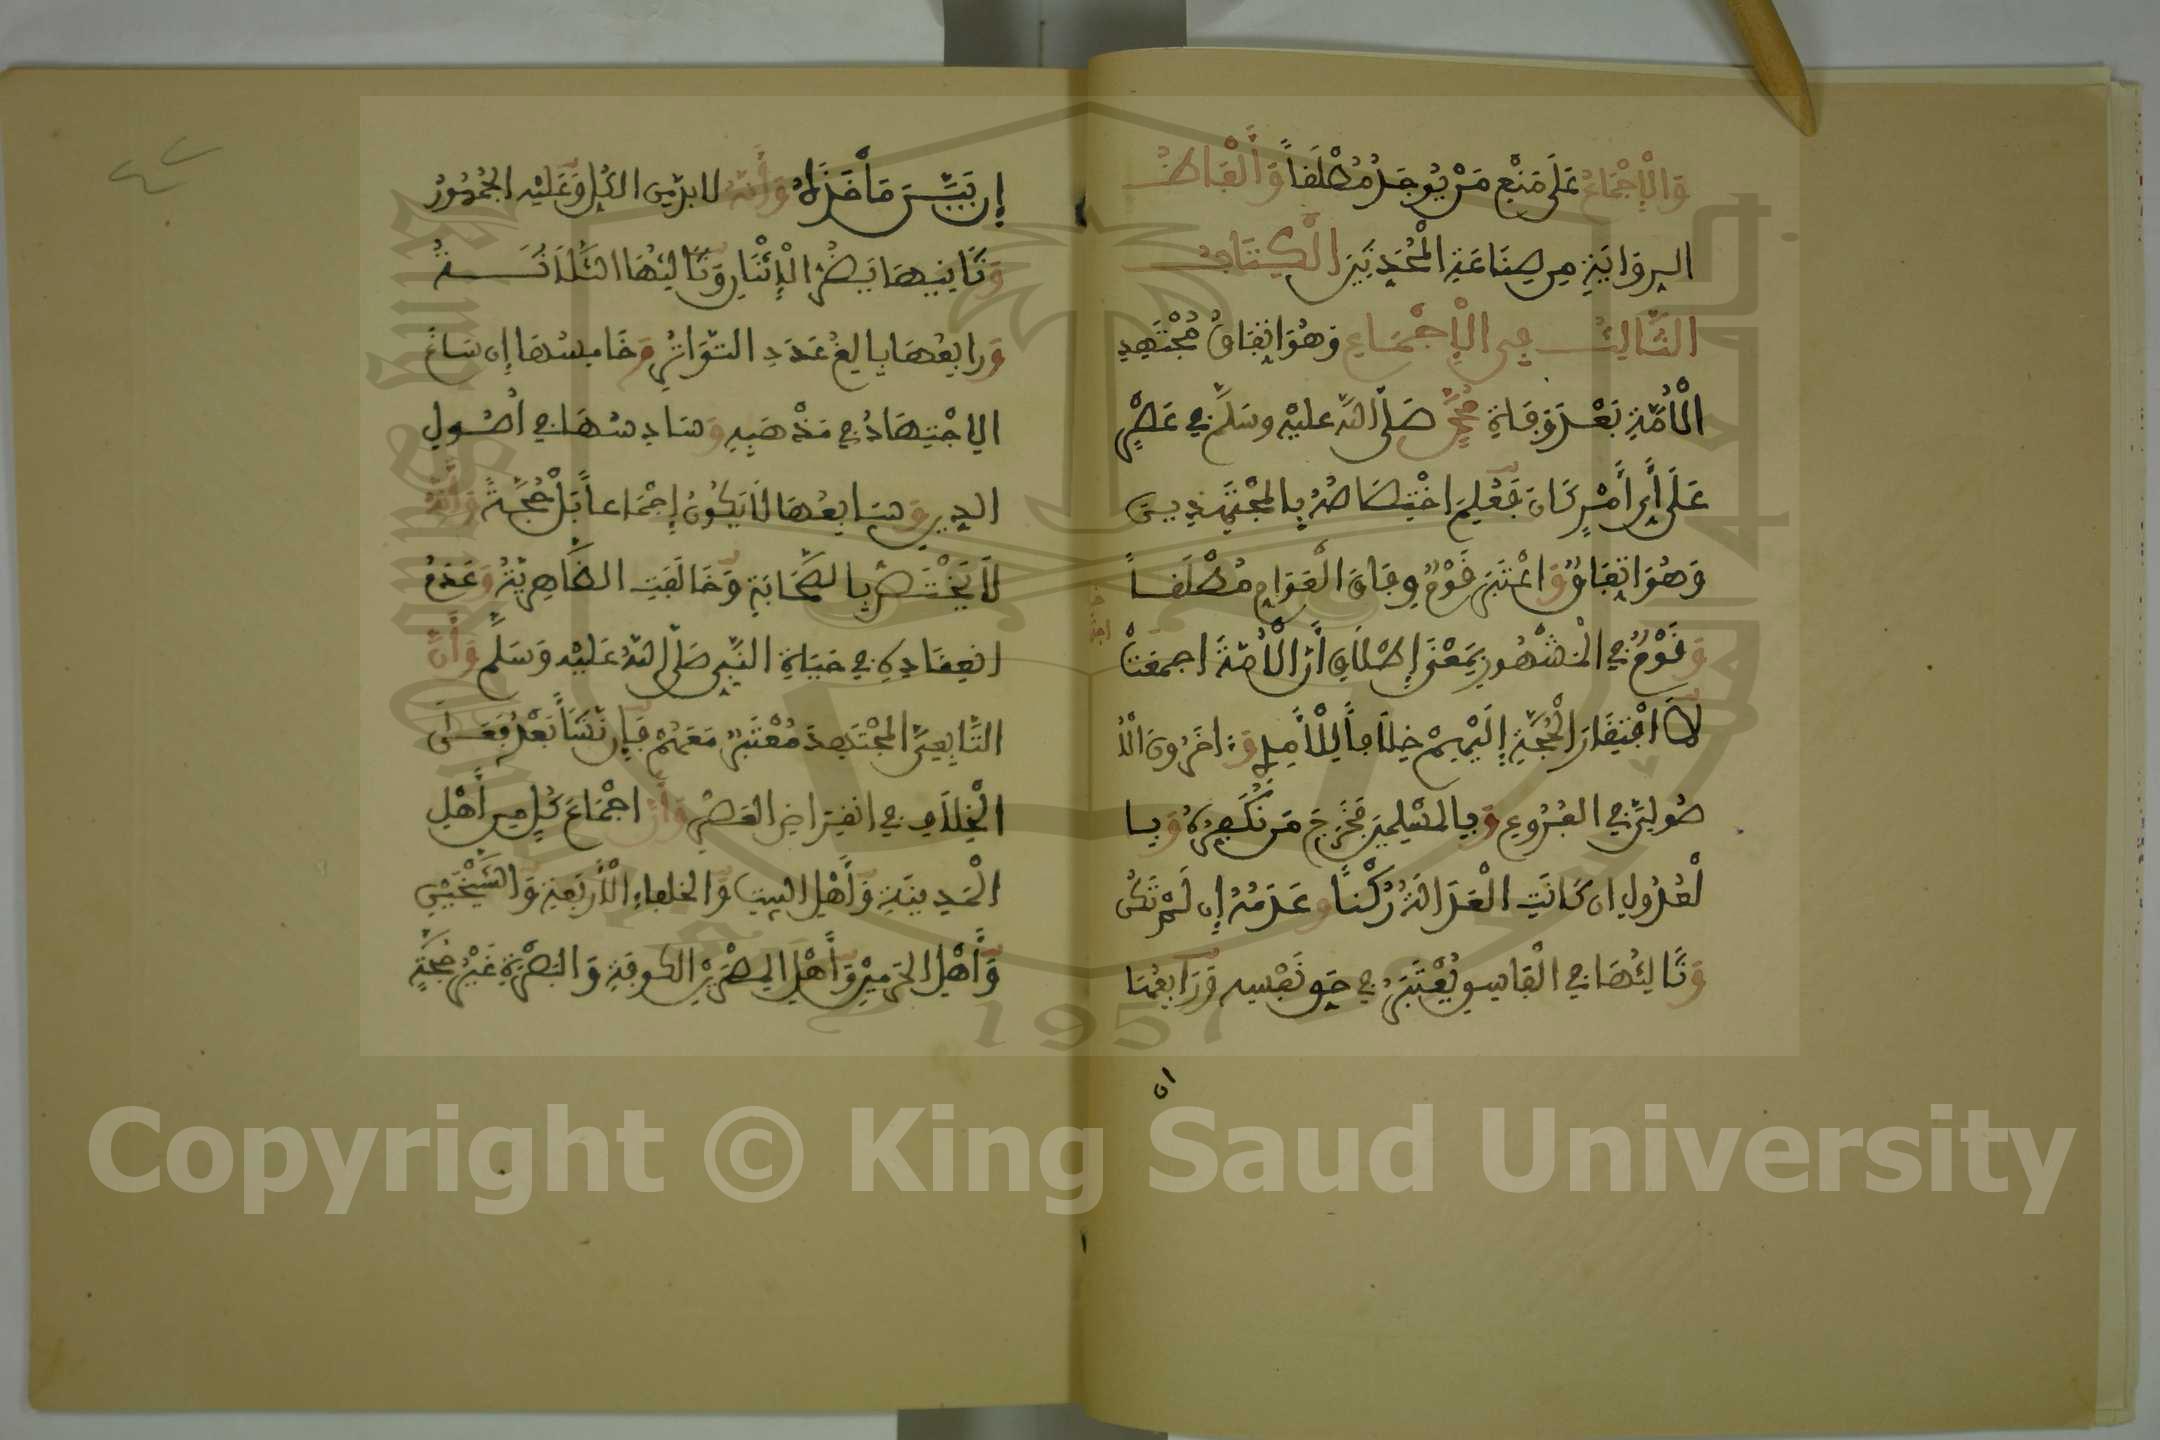 وَالْإِجْمَاعُ عَلَى مَنْعِ مَنْ يُوجَدُ مُطْلَقاً وَأَلْفَاظُ
الرِوَايَةِ مِن صِنَاعَةِ الْمُحَدِّثِينَ الْكِتَابُ
الثَّالِثُ فِي الْإِجْمَاعِ وَهُوَ اتِفَاقُ مُجْتَهِدِ
الْأُمَّةِ بَعْدَ وَفَاةِ مُحَمَّدٍ صَلَّى اللهُ عليْهِ وسَلَّمَ فِي عَصْرٍ
عَلَى أَيِّ أَمْرٍ كَانَ فَعُلِمَ اخْتِصَاصُهُ بِالمجْتَهِدِينَ
وَهُوَ اتِفَاقٌ وَاعْتَبَرَ قَوْمٌ وِفَاقَ الْعَوَامِ مُطْلَقاً
وَقَوْمٌ فِي الْمَشْهُورِ بِمَعْنَى إِطْلَاقِ أَنَّ الْأُمَّةَ اجمعَتْ
لَا افْتِقَارَ الْحُجَّةِ إِلَيْهِمْ خِلَافاً لِلْأَمِدِي وَءَاخَرُونَ الْأُ
صُولِيَّ فِي الفُرُوعِ وَبِالمسْلِمِينَ فَخَرَجَ مَن نُّكَفِّرُهُ وَبِا
لْعُدُولِ ان كَانَتِ الْعَدَالَةُ رُكْناً وعَدَمُهُ إِن لَمْ تَكُن
وَثَالِثُهَا فِي الْفَاسِقِ يُعْتَبَرُ فِي حَقِ نَفْسِهِ وَرَابِعُهَا
ان
إِن بَيَّنَ مَأْخَذَهُ وَأَنَّهُ لَا بدَّ مِن الكُلِ وَعَلَيْهِ الجُمْهُورُ
وَثَانِيهَا يَضُرُّ الْإِثْنَانِ وَثَالِثُهَا الثَّلَاثَةُ
وَرابِعُهَا بِالِغُ عَدَدِ التوَاتُرِ وَخَامِسُهَا إِن سَاغَ
الِاجْتِهَادُ فِي مَذْهَبِهِ وَسَادِسُهَا فِي اُصُولِ
الدِينِ وَسَابِعُهَا لَا يَكُونُ إِجْمَاعاً بَلْ حُجَّةً وَأَنَّهُ
لَا يَخْتَصُّ بِالصَّحَابَةِ وَخَالَفَتِ الظَّاهِرِيَّةُ وَعَدَمُ
انعِقَادِهِ فِي حَيَاةِ النَّبِيِّ صَلَّى اللهُ عَلَيْهِ وَسَلَّمَ وَأَنَّ
التَّابِعِيَّ المجْتَهِدَ مُعْتَبَرٌ مَعَهُمْ فَإِن نَشَأَ بَعْدُ فَعَلَى
الْخِلَافِ فِي انقِرَاضِ العَصْرِ وَأَنَّ اجْمَاعَ كُلٍ مِن أَهْلِ
الْمَدِينَةِ وَأَهْلِ البَيْتِ وَالخلفاءِ الْأَرْبَعَةِ وَالشَّيْخَيْنِ
وَأَهْلِ الحَرَمَيْنِ وَأَهْلِ المِصْرَيْنِ الكوفَةِ وَالبَصْرَةِ غَيْرُ حُجَّةٍ
Copyright © King Saud University
1957